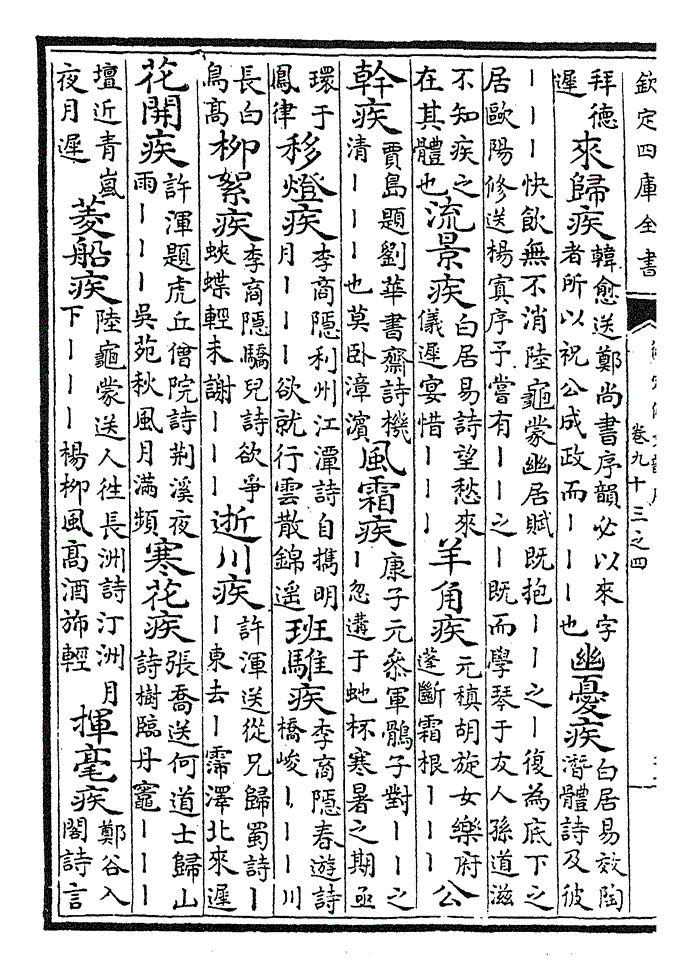 欽定四庫全書
卷九十三之四
拜德遲來歸疾韓愈送鄭尚書序韻必以來字者所以祝公成政而丨丨丨也幽憂疾白居易效陶潛體詩及彼
丨丨丨快飲無不消陸龜蒙幽居賦既抱丨丨之丨復為底下之居歐陽修送楊寘序予嘗有丨丨之丨既而學琴于友人孫道滋
不知疾之在其體也流景疾白居易詩望愁來儀遲宴惜丨丨丨羊角疾元稹胡旋女樂府蓬斷霜根丨丨丨公
幹疾賈島題劉華書齋詩機清丨丨丨也莫卧漳濱風霜疾康子元參軍鶻子對丨丨之丨忽遘于虵杯寒暑之期亟
環于鳳律移燈疾李商隱利州江潭詩自攜明月丨丨丨欲就行雲散錦遙班騅疾李商隱春遊詩橋峻丨丨丨川
長白鳥高柳絮疾李商隱驕兒詩欲爭蛺蝶輕未謝丨丨丨逝川疾許渾送從兄歸蜀詩丨丨東去丨霈澤北來遲
花開疾許渾題虎丘僧院詩荆溪夜雨丨丨丨吳苑秋風月滿頻寒花疾張喬送何道士歸山詩樹臨丹竈丨丨丨
壇近青嵐夜月遲菱船疾陸龜蒙送人往長洲詩汀洲月下丨丨丨楊柳風高酒斾輕揮毫疾鄭谷入閣詩言